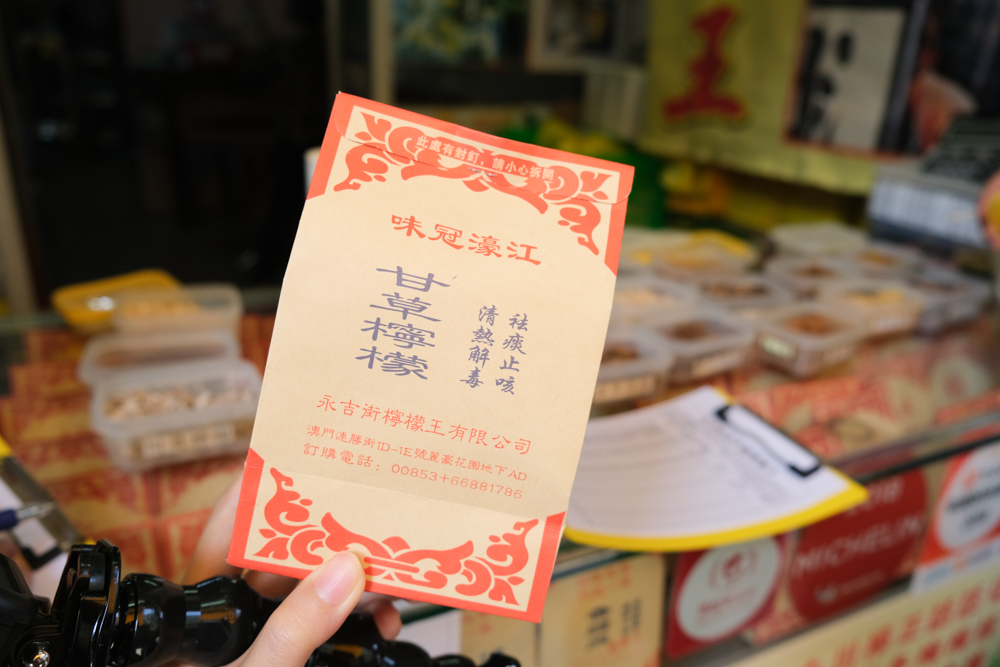 此處有封釘，請小心拆開
味冠濠江
甘草檸檬
祛痰止咳
清熱解毒
永吉街檸檬王有限公司
澳門連勝街1D-1E號麗豪花園地下AD
訂購電話：00853+66881786
王
MICHELIN